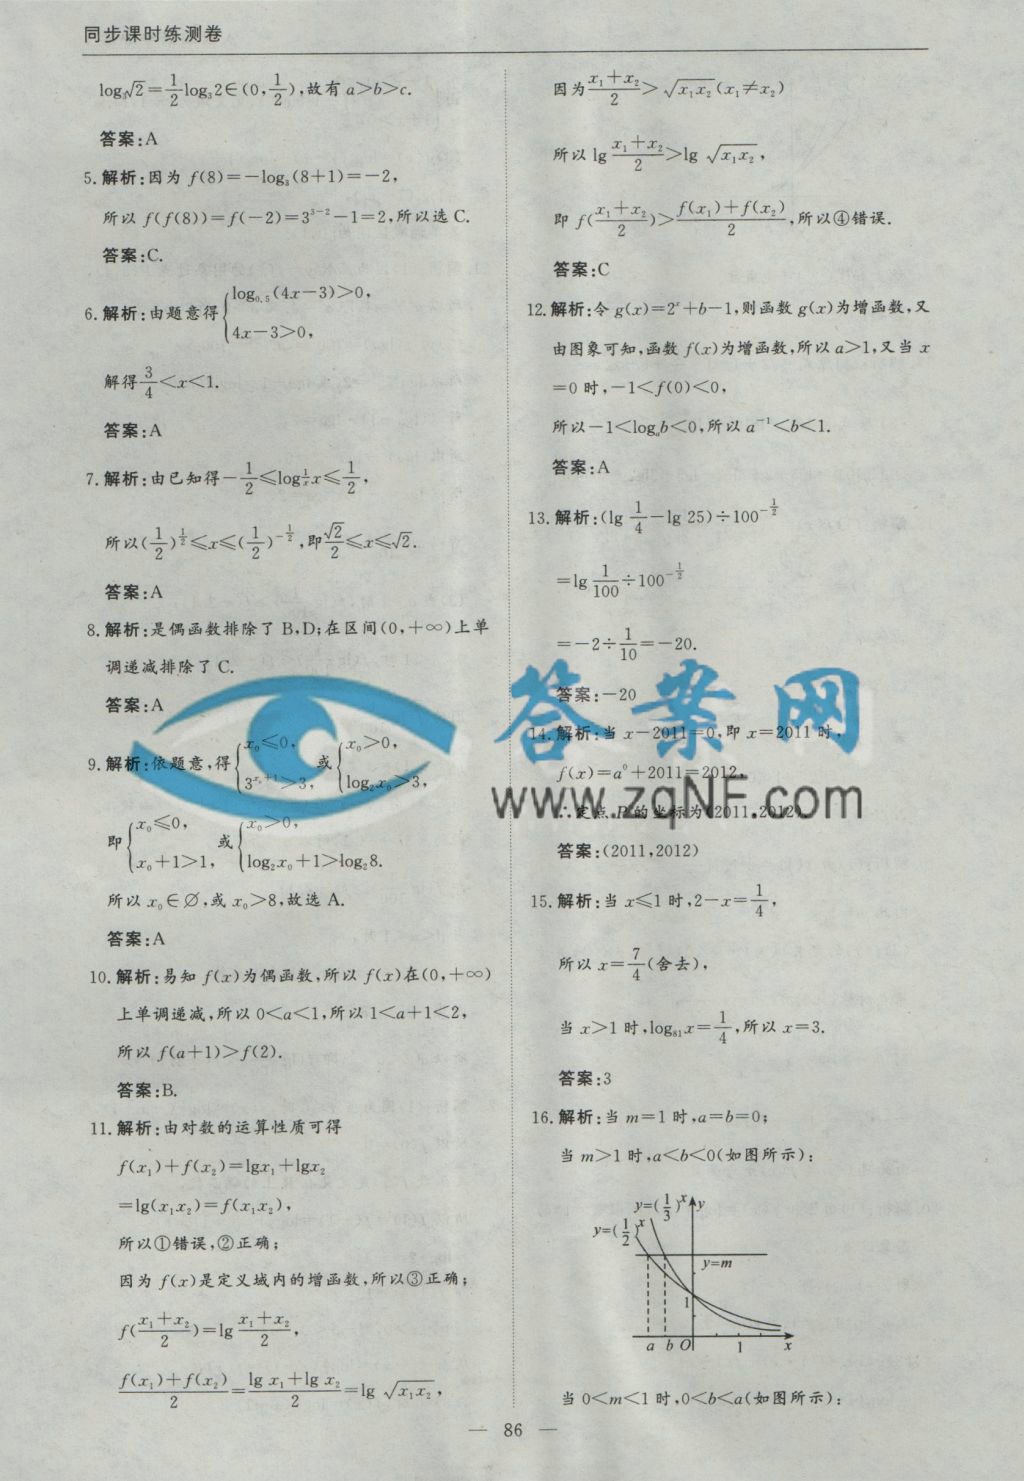 同步课时练测卷
log₃√2=1/2log₃2∈(0,1/2),故有 a>b>c.
答案:A
5.解析:因为 f(8)=-log₃(8+1)=-2,
所以 f(f(8))=f(-2)=3^(3-2)-1=2,所以选 C.
答案:C.
6.解析:由题意得{log₀.₅(4x-3)>0,
4x-3>0,
解得3/4<x<1.
答案:A
7.解析:由已知得-1/2≤log½x≤1/2,
所以(1/2)^(1/2)≤x≤(1/2)^(-1/2),即√2/2≤x≤√2.
答案:A
8.解析:是偶函数排除了 B,D;在区间(0,+∞)上单
调递减排除了 C.
答案:A
9.解析:依题意,得{x₀≤0, 3^(x₀+1)>3, 或{x₀>0, log₂x₀>3,
即{x₀≤0, x₀+1>1, 或{x₀>0, log₂x₀+1>log₂8.
所以 x₀∈∅,或 x₀>8,故选 A.
答案:A
10.解析:易知 f(x)为偶函数,所以 f(x)在(0,+∞)
上单调递减,所以 0<a<1,所以 1<a+1<2,
所以 f(a+1)>f(2).
答案:B.
11.解析:由对数的运算性质可得
f(x₁)+f(x₂)=lgx₁+lgx₂
=lg(x₁x₂)=f(x₁x₂),
所以①错误,②正确;
因为 f(x)是定义域内的增函数,所以③正确;
f((x₁+x₂)/2)=lg (x₁+x₂)/2,
(f(x₁)+f(x₂))/2=(lg x₁+lg x₂)/2=lg √(x₁x₂),
因为(x₁+x₂)/2>√(x₁x₂)(x₁≠x₂)
所以 lg (x₁+x₂)/2>lg √(x₁x₂),
即 f((x₁+x₂)/2)>(f(x₁)+f(x₂))/2,所以④错误.
答案:C
12.解析:令 g(x)=2ˣ+b-1,则函数 g(x)为增函数,又
由图象可知,函数 f(x)为增函数,所以 a>1,又当 x
=0 时,-1<f(0)<0,
所以-1<logₐb<0,所以 a⁻¹<b<1.
答案:A
13.解析:(lg 1/4-lg 25)÷100^(-1/2)
=lg 1/100÷100^(-1/2)
=-2÷1/10=-20.
答案:-20
14.解析:当 x-2011=0,即 x=2011 时,
f(x)=a⁰+2011=2012,
∴定点 P 的坐标为(2011,2012).
答案:(2011,2012)
15.解析:当 x≤1 时,2-x=1/4,
所以 x=7/4(舍去),
当 x>1 时,log₈₁x=1/4,所以 x=3.
答案:3
16.解析:当 m=1 时,a=b=0;
当 m>1 时,a<b<0(如图所示):
y=(1/3)ˣ y
y=(1/2)ˣ
y=m
1
a b O 1 x
当 0<m<1 时,0<b<a(如图所示):
— 86 —
答案网
www.zqNF.com